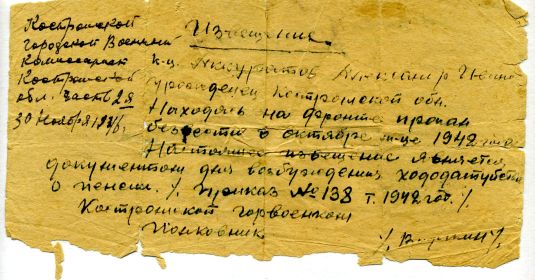 Костромской
городской Военный
Комиссариат
Костромской
обл. часть 28
30 Ноября 1946г.
Извещение.
к-ц. Аккуратов Александр Иванов
урожденец Костромской обл.
Находясь на фронте пропал
безвести в октябре м-це 1942 года
Настоящее извещение является
документом для возбуждения хододатуйства
о пенсии. /. Приказ №138 т. 1942 год. /.
Костромской горвоенком
Полковник